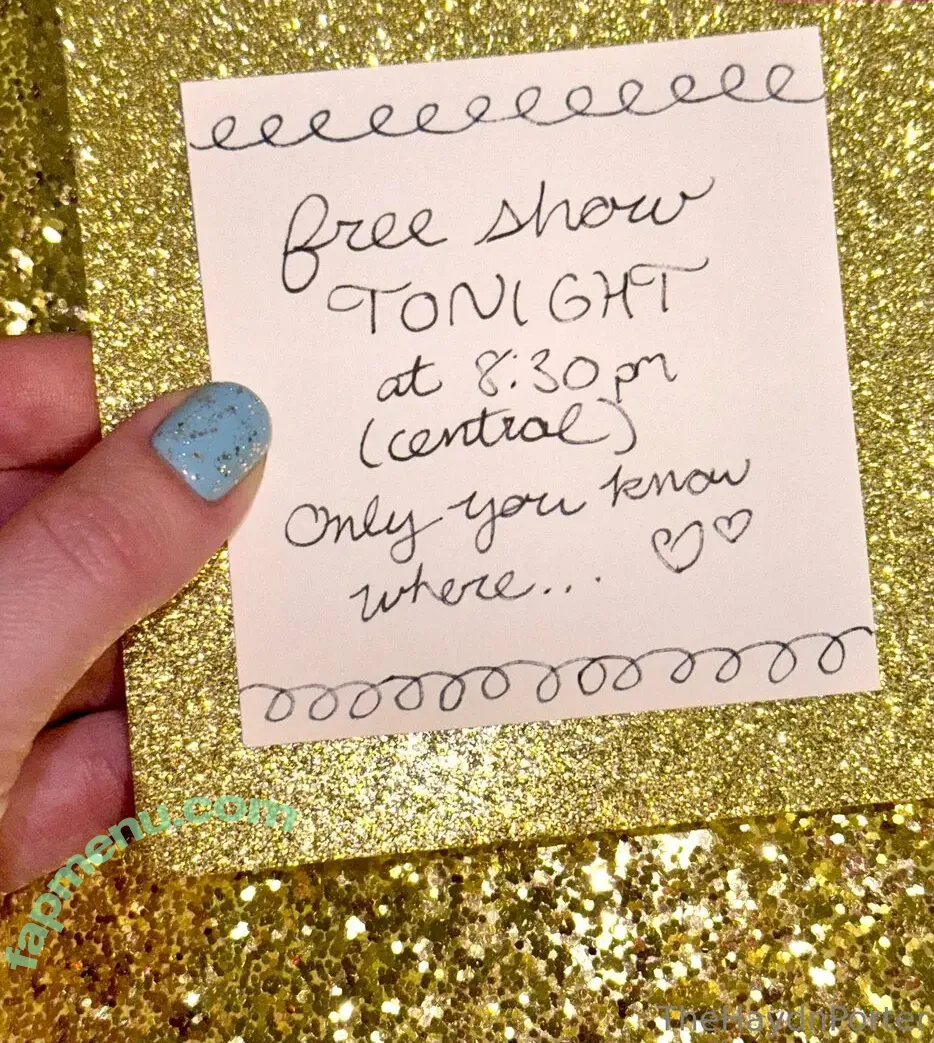 free show
TONIGHT
at 8:30pm
(central)
Only you know
where...
fapmenu.com
TheHaydnPorter